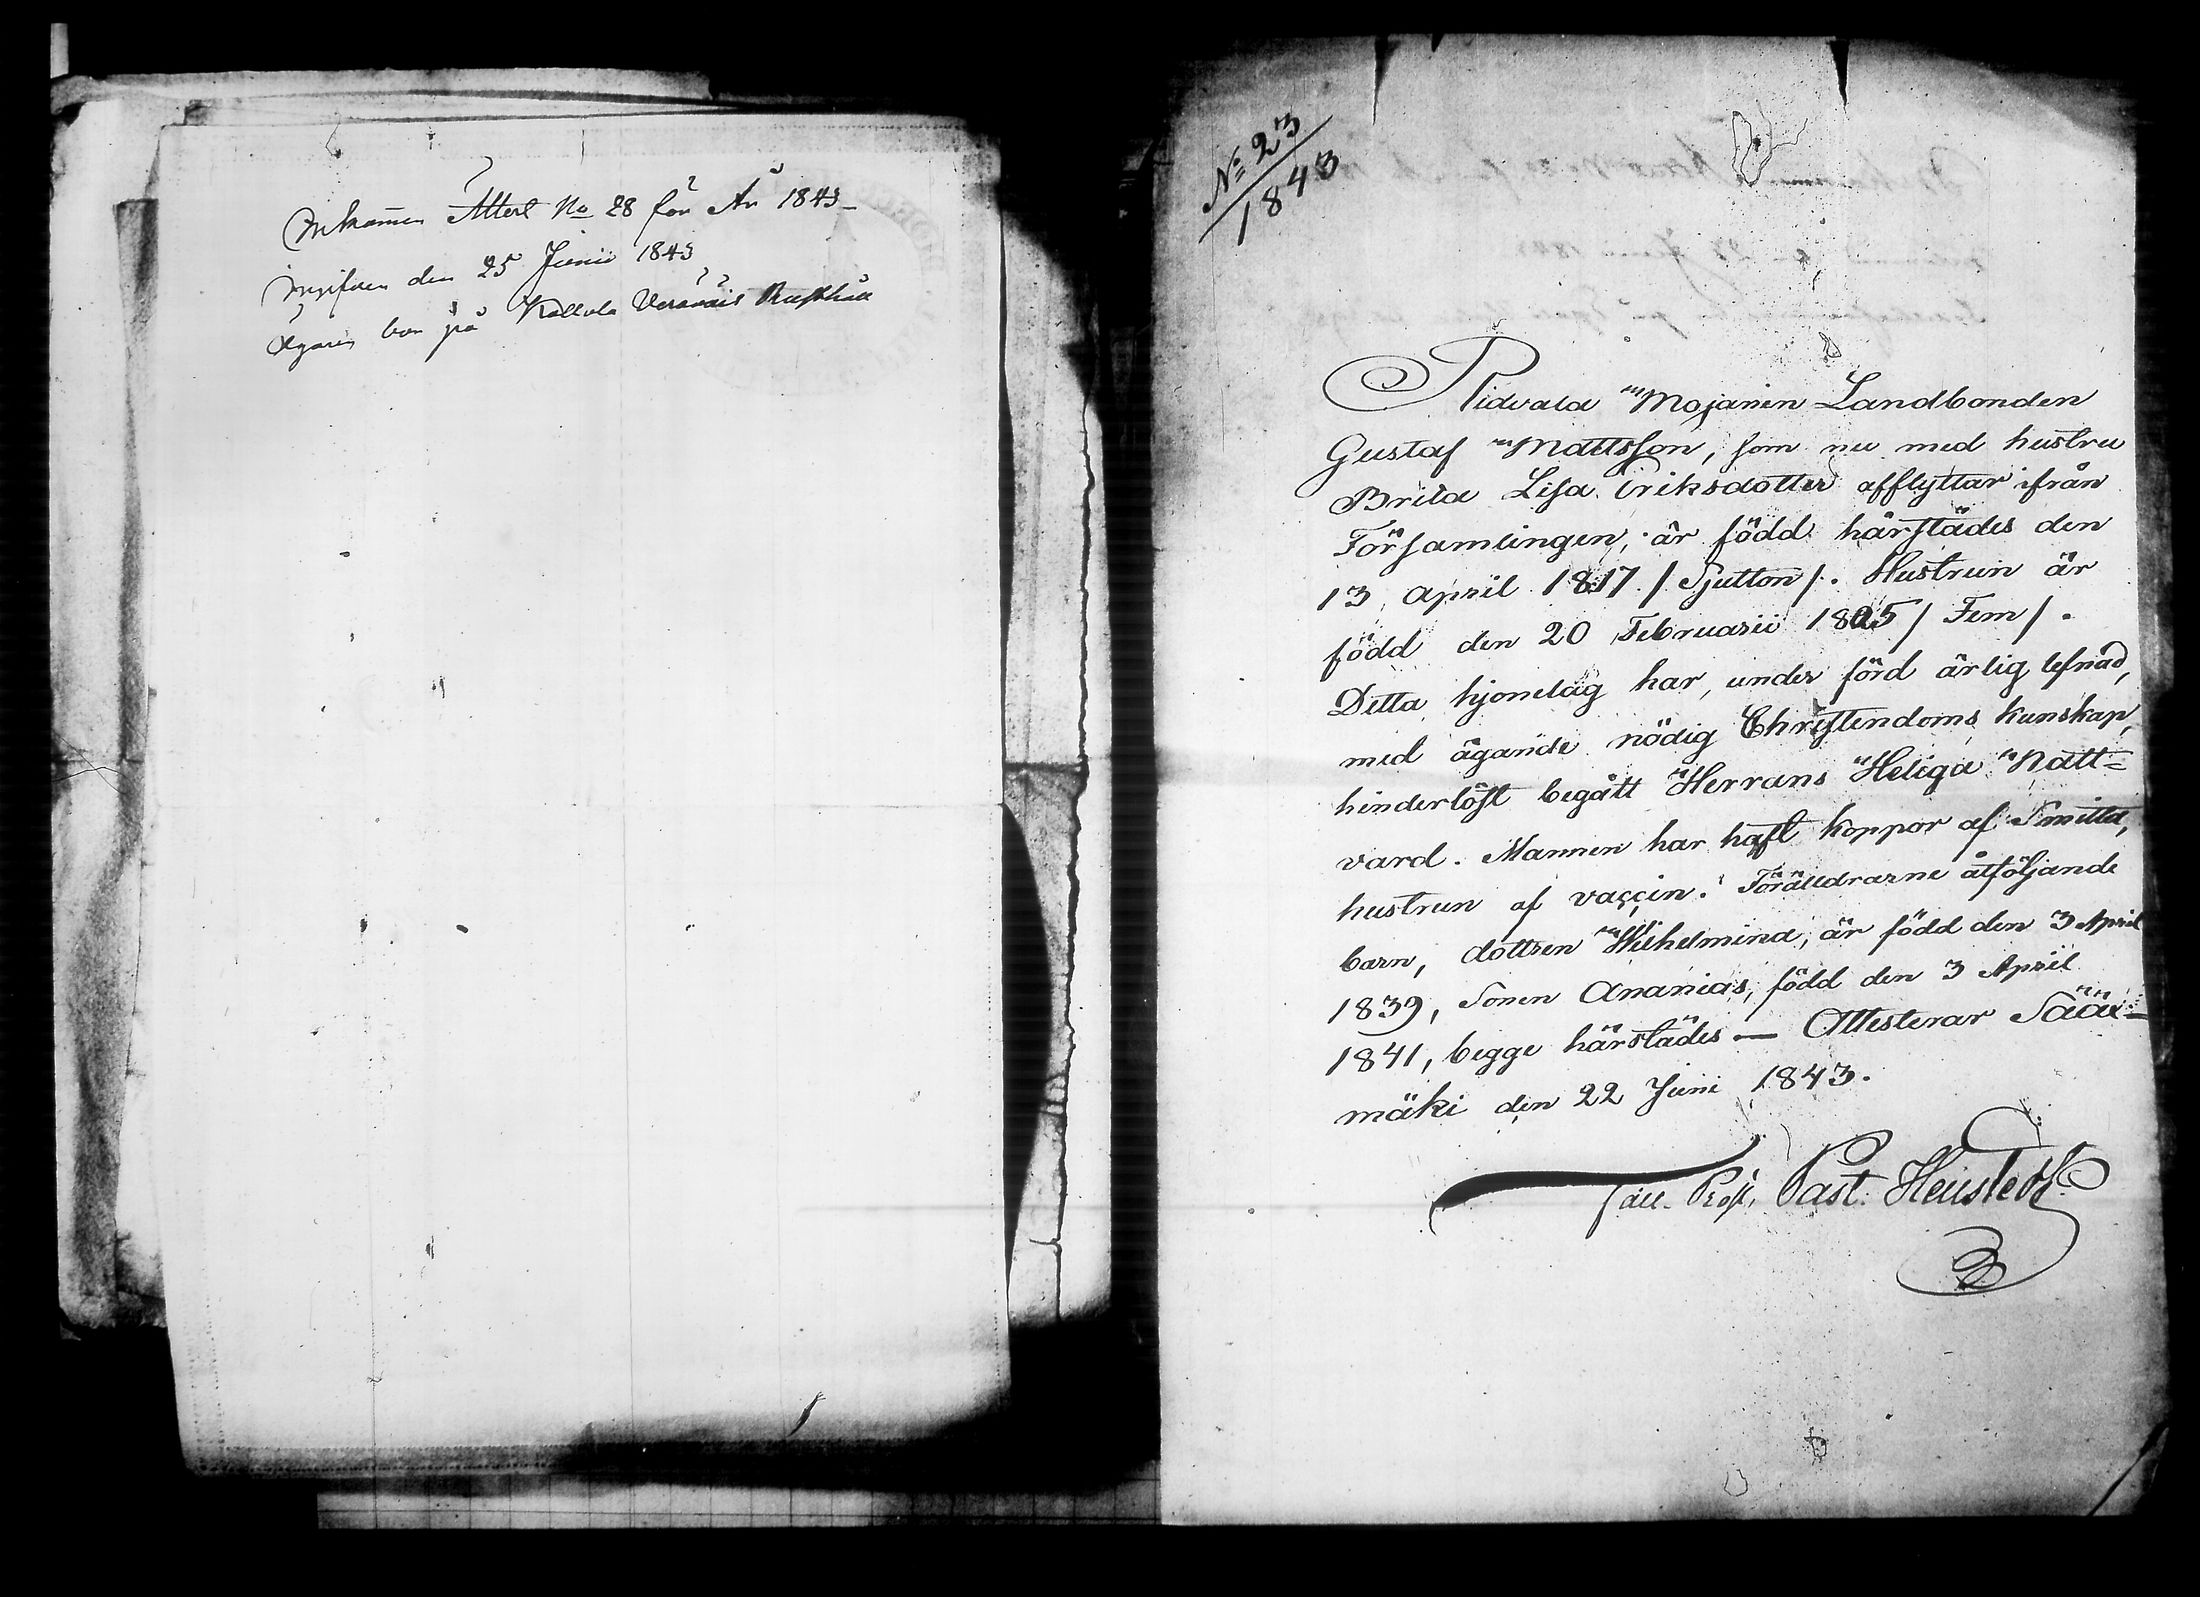 Inkommen Attest No 28 för År 1843
ingifven den 25 Junii 1843
ägaren bor på Kallola Rusthåll
No 23
1843
Pidvala Mojanen Landbonden
Gustaf Mattsson, som nu med hustru
Brita Lisa Eriksdotter afflyttar ifrån
Församlingen, är född härstädes den
13 April 1817 / Sjutton /. Hustrun är
född den 20 Februarii 1805 / Fem /.
Detta hjonelag har, under förd ärlig lefnad,
med ägande nödig Christendoms kunskap,
hinderlöst begått Herrans Heliga Natt=
vard. Mannen har haft koppor af Smitta,
hustrun af vaccin. Föräldrarne åtföljande
barn, dottren Wilhelmina, är född den 3 April
1839, Sonen Ananias, född den 3 April
1841, begge härstädes — Attesterar Sää-
mäki den 22 Juni 1843.
Past.